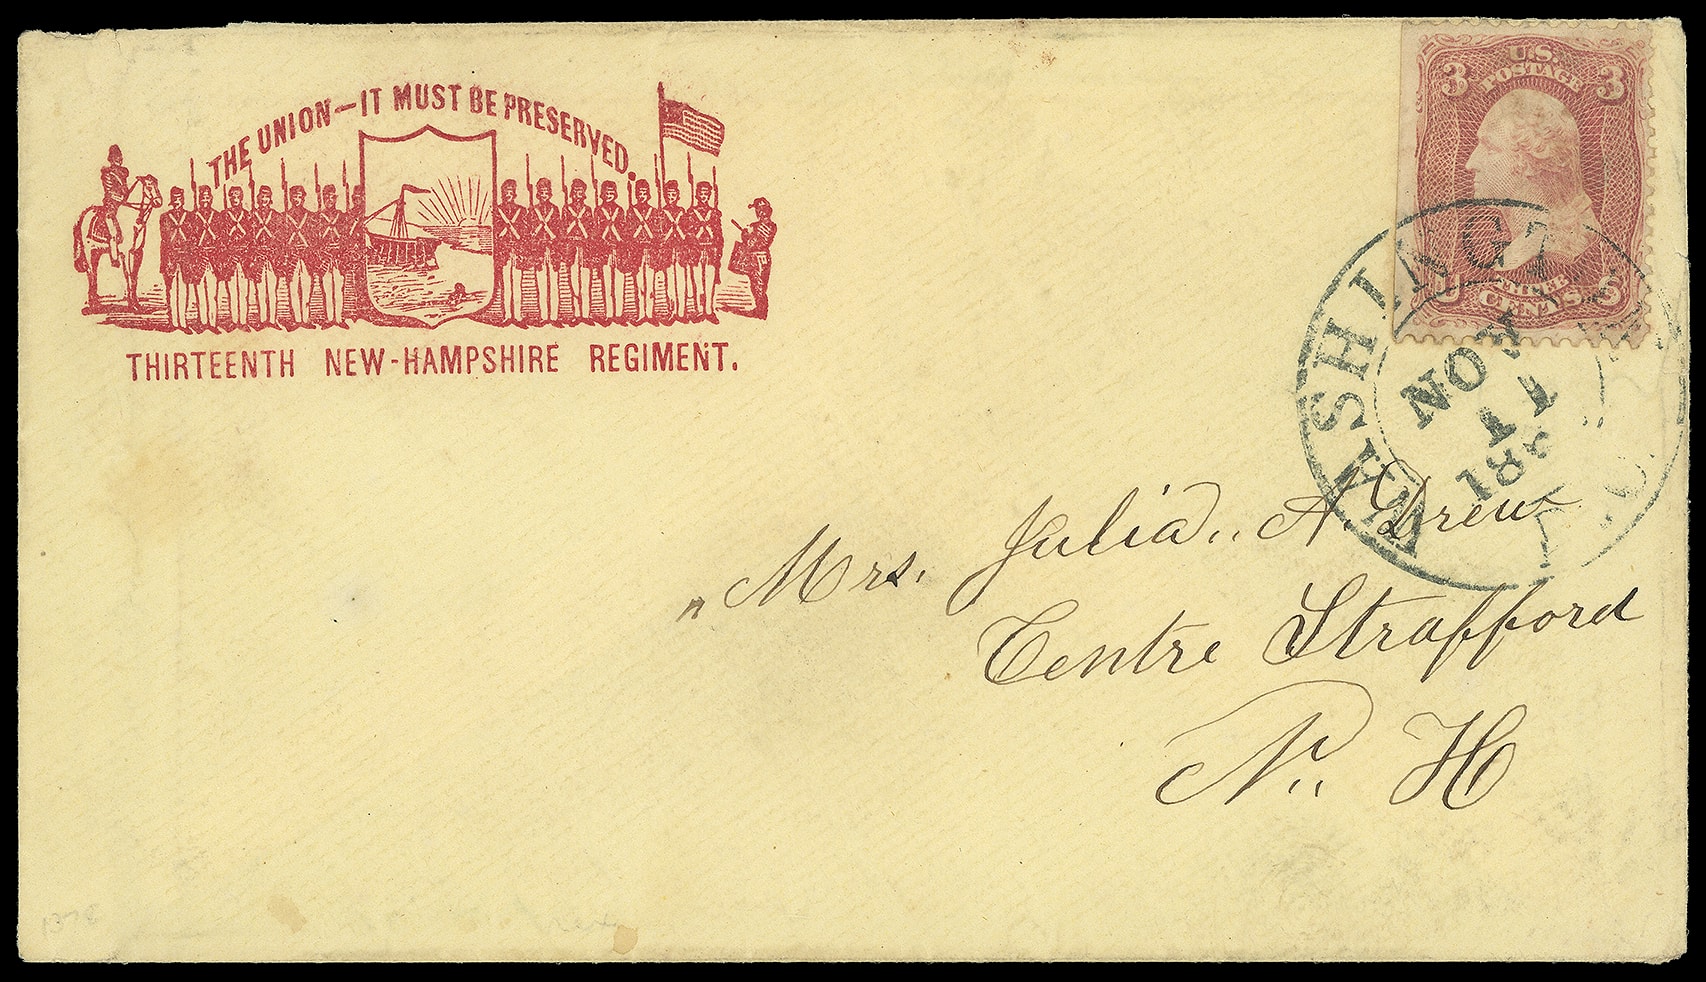 THE UNION—IT MUST BE PRESERVED.
THIRTEENTH NEW-HAMPSHIRE REGIMENT.
3 U.S. POSTAGE 3
3 THREE CENTS. 3
NOV
11
Mrs. Julia,, A. Drew
Centre Strafford
N,, H